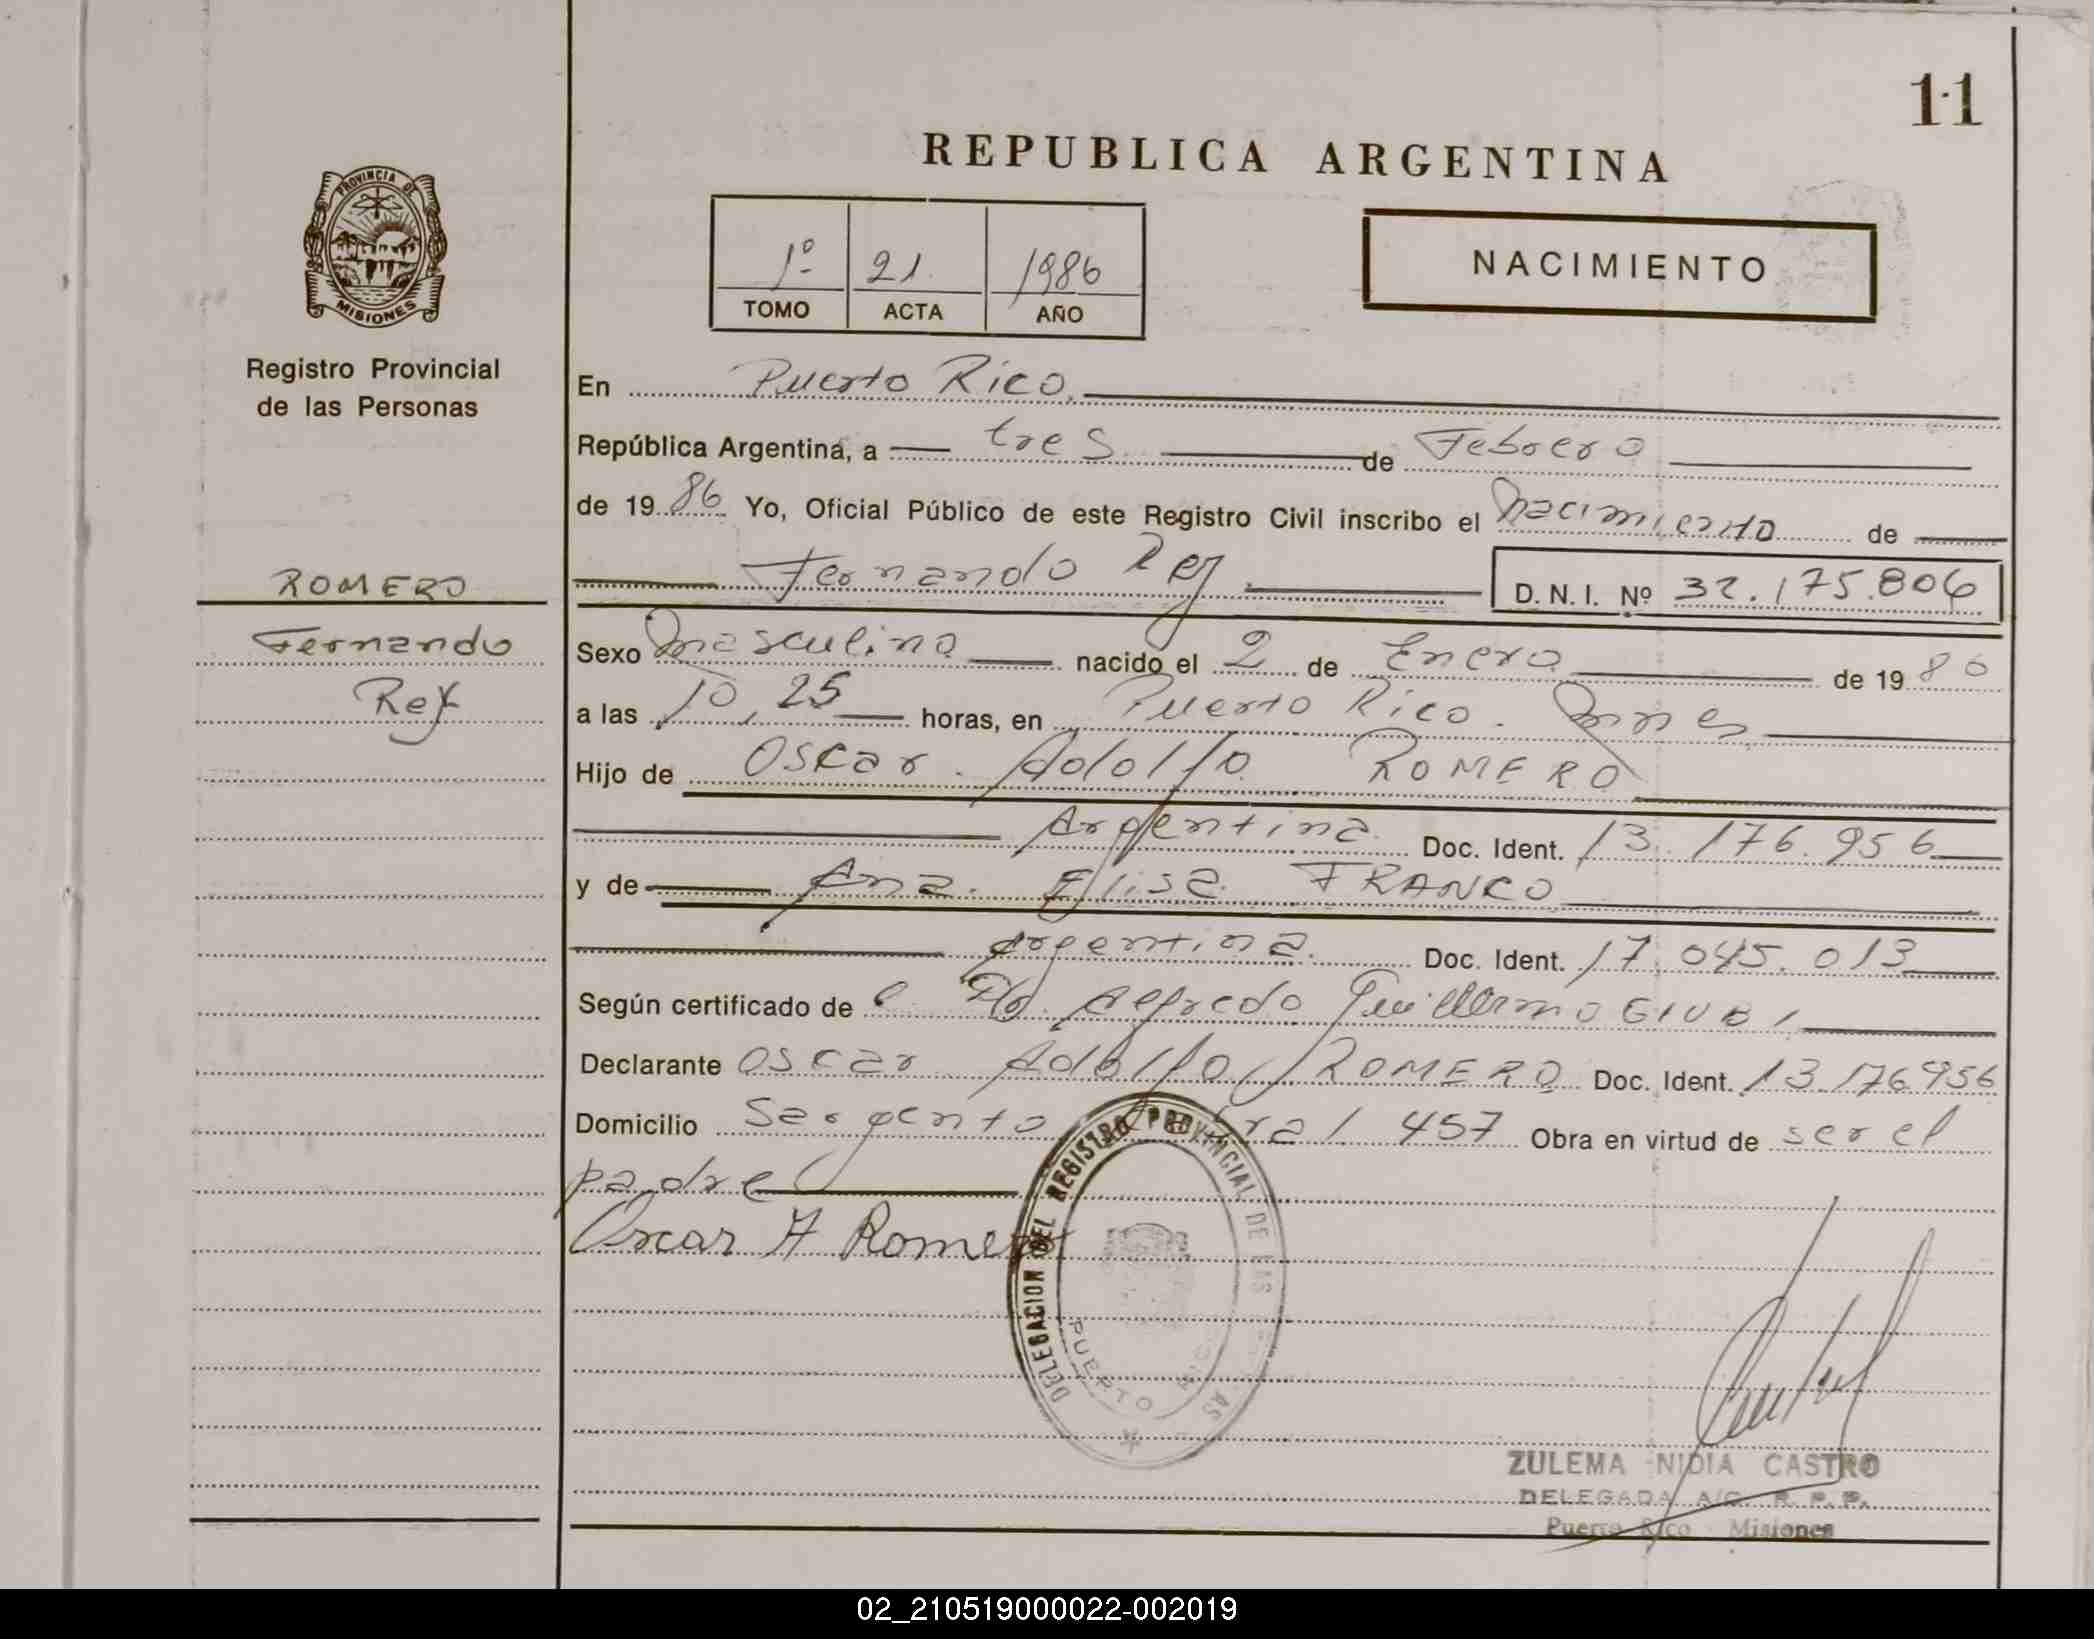 11
REPUBLICA ARGENTINA
PROVINCIA DE
MISIONES
1º 21 1986
TOMO ACTA AÑO
NACIMIENTO
Registro Provincial
de las Personas
En Puerto Rico.
República Argentina, a tres de Febrero
de 1986 Yo, Oficial Público de este Registro Civil inscribo el nacimiento de
Fernando Rey D. N. I. Nº 32.175.806
ROMERO
Fernando
Rey
Sexo masculino nacido el 2 de Enero de 1986
a las 10,25 horas, en Puerto Rico. Mnes
Hijo de Oscar Adolfo ROMERO
Argentina Doc. Ident. 13.176.956
y de Ana Elisa FRANCO
argentina. Doc. Ident. 17.045.013
Según certificado de Alfredo Guillermo GIUBI
Declarante Oscar Adolfo ROMERO Doc. Ident. 13.176.956
Domicilio Sargento Cabral 457 Obra en virtud de ser el
padre
Oscar A Romero
DELEGACION DEL REGISTRO PROVINCIAL DE LAS
PUERTO RICO
ZULEMA NIDIA CASTRO
DELEGADA A/C. R. P. P.
Puerto Rico - Misiones
02_210519000022-002019